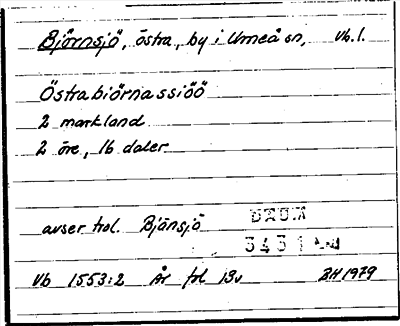 Björnsjö, östra, by i Umeå sn, Vb. l.
Östrabiörnassiöö
2 markland
2 öre, 16 daler
avser trol. Bjänsjö
DAUM
3431
Vb 1553:2 År fol 13v BH 1979